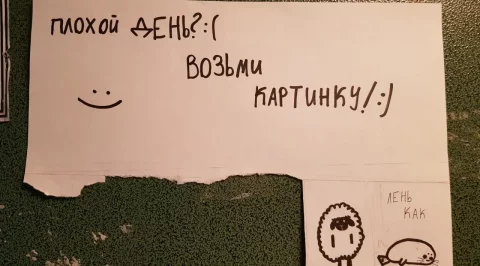 ПЛОХОЙ ДЕНЬ?:(
ВОЗЬМИ
КАРТИНКУ!:)
ЛЕНЬ
КАК